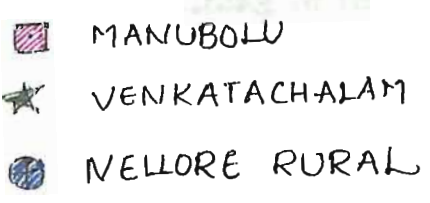 MANUBOLU
VENKATACHALAM
NELLORE RURAL